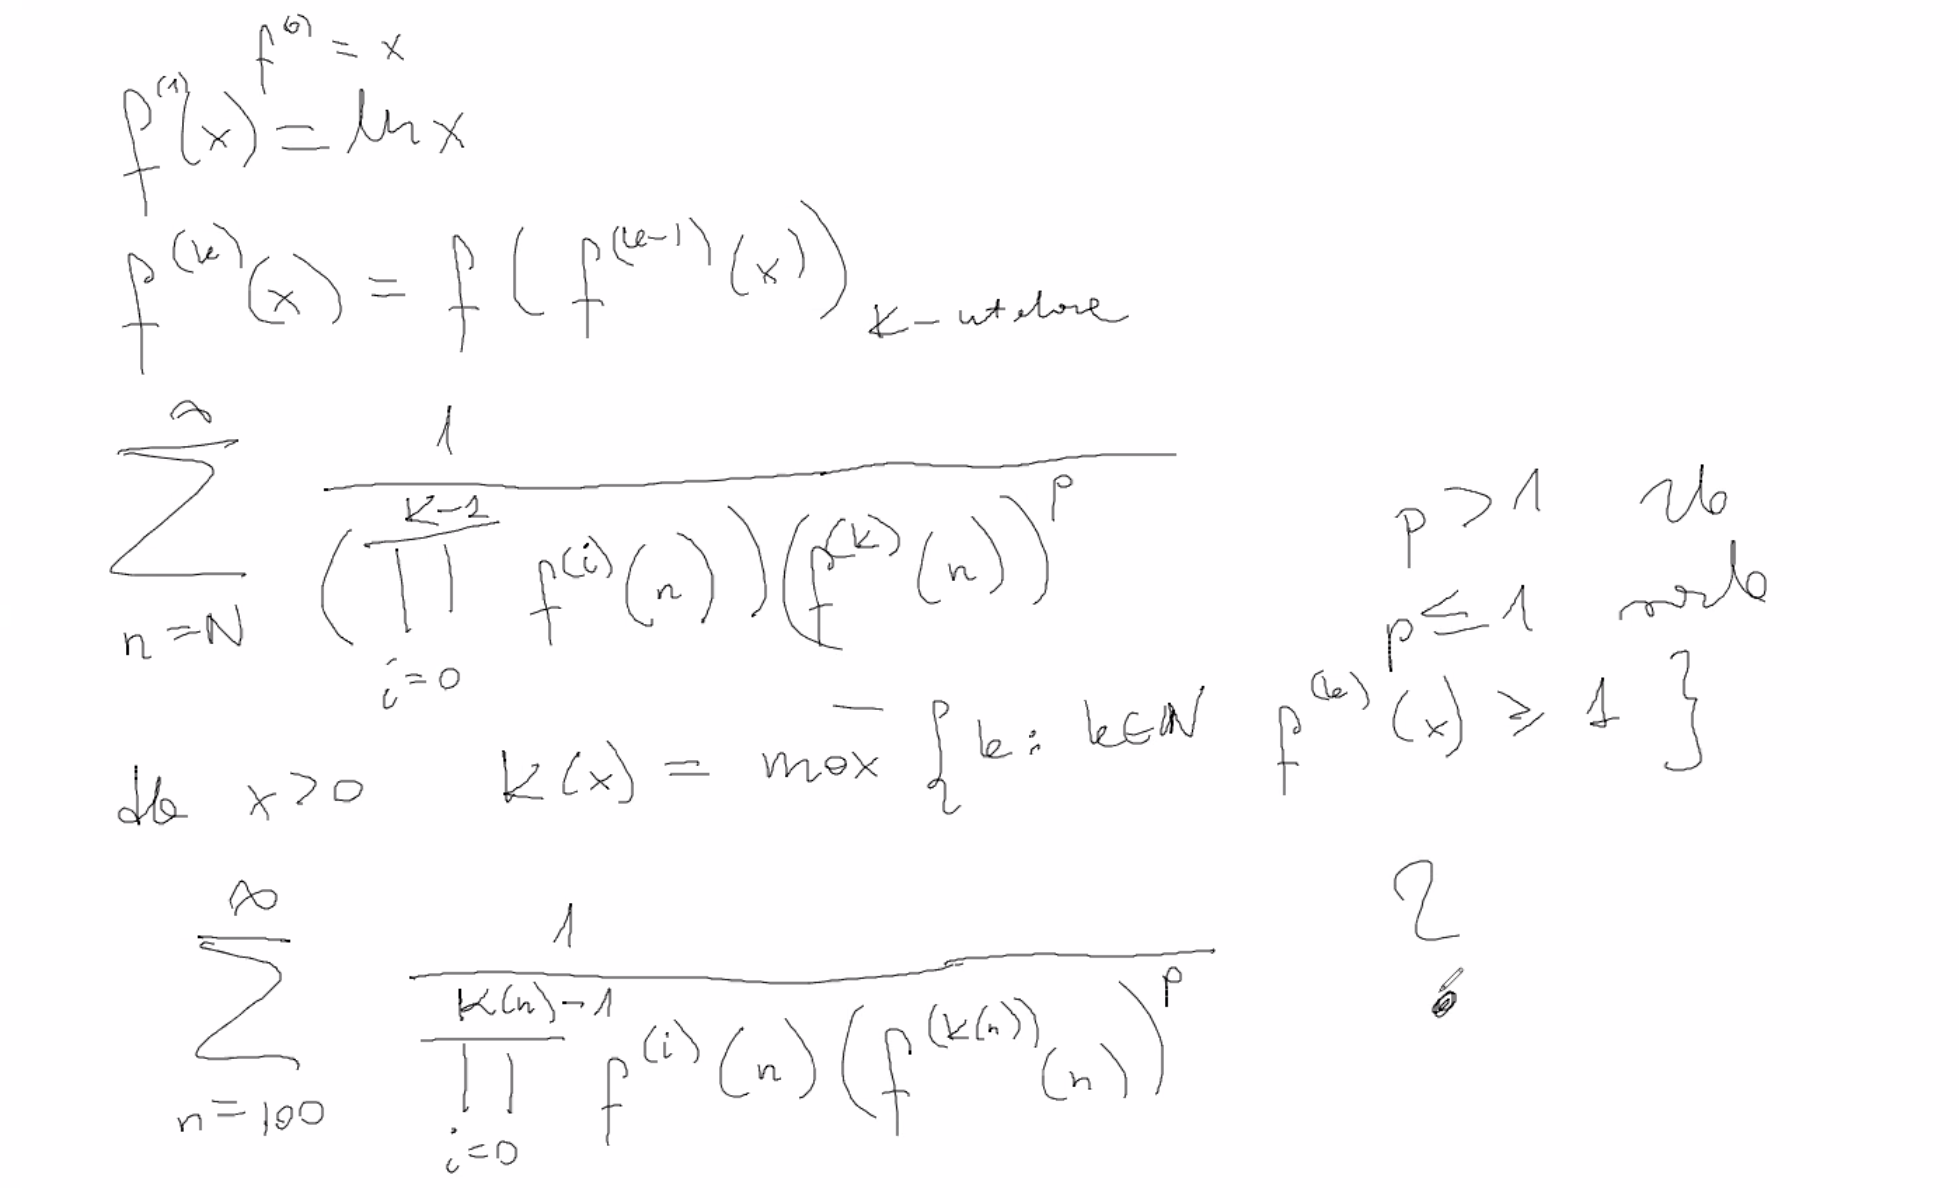 f^(0) = x
f^(1)(x) = ln x
f^(k)(x) = f(f^(k-1)(x)) K-ustalone
∑_{n=N}^{∞} 1 / ((∏_{i=0}^{K-1} f^(i)(n)) (f^(k)(n))^p)
p > 1 zb
p ≤ 1 rozb
dla x > 0 K(x) = max {k: k∈N f^(k)(x) ≥ 1}
∑_{n=100}^{∞} 1 / (∏_{i=0}^{K(n)-1} f^(i)(n) (f^(K(n))(n))^p) ?